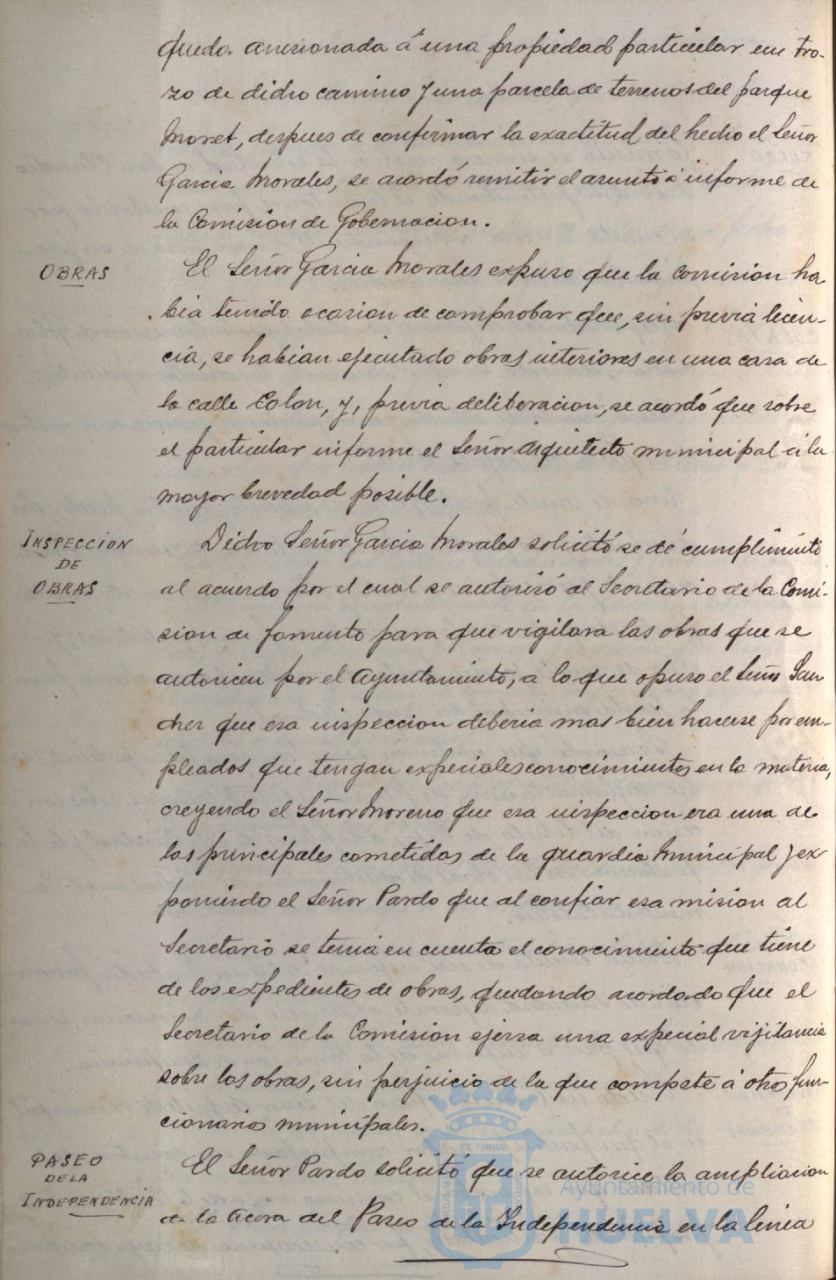 queda anexionada á una propiedad particular un tro-
zo de dicho camino y una parcela de terrenos del parque
Moret, despues de confirmar la exactitud del hecho el Señor
Garcia Morales, se acordó remitir el asunto á informe de
la Comision de Gobernacion.
OBRAS
El Señor Garcia Morales expuso que la Comision ha-
bia tenido ocasion de comprobar que, sin previa licen-
cia, se habian ejecutado obras interiores en una casa de
la calle Colon, y, previa deliberacion, se acordó que sobre
el particular informe el Señor Arquitecto municipal á la
mayor brevedad posible.
INSPECCION
DE
OBRAS
Dicho Señor Garcia Morales solicitó se dé cumplimiento
al acuerdo por el cual se autorizó al Secretario de la Comi-
sion de Fomento para que vigilara las obras que se
autoricen por el Ayuntamiento, a lo que opuso el Señor San
chez que esa inspeccion deberia mas bien hacerse por em-
pleados que tengan especiales conocimientos en la materia,
creyendo el Señor Moreno que esa inspeccion era una de
las principales cometidas de la guardia Municipal y ex-
poniendo el Señor Pardo que al confiar esa mision al
Secretario se tenia en cuenta el conocimiento que tiene
de los expedientes de obras, quedando acordado que el
Secretario de la Comision ejerza una especial vijilancia
sobre las obras, sin perjuicio de la que compete á otros fun-
cionarios municipales.
PASEO
DE LA
INDEPENDENCIA
El Señor Pardo solicitó que se autorice la ampliacion
de la acera del Paseo de la Independencia en la linea
Ayuntamiento de
HUELVA